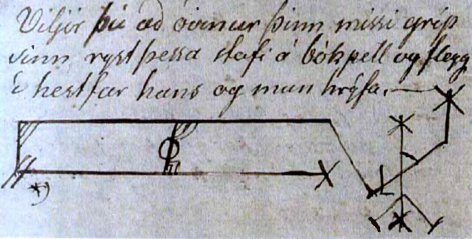 Viljir þú ad óvinur þinn missi grip
sinn ryst þessa stafi á bókpell og fleyg
í hestfar hans og mun hrífa.